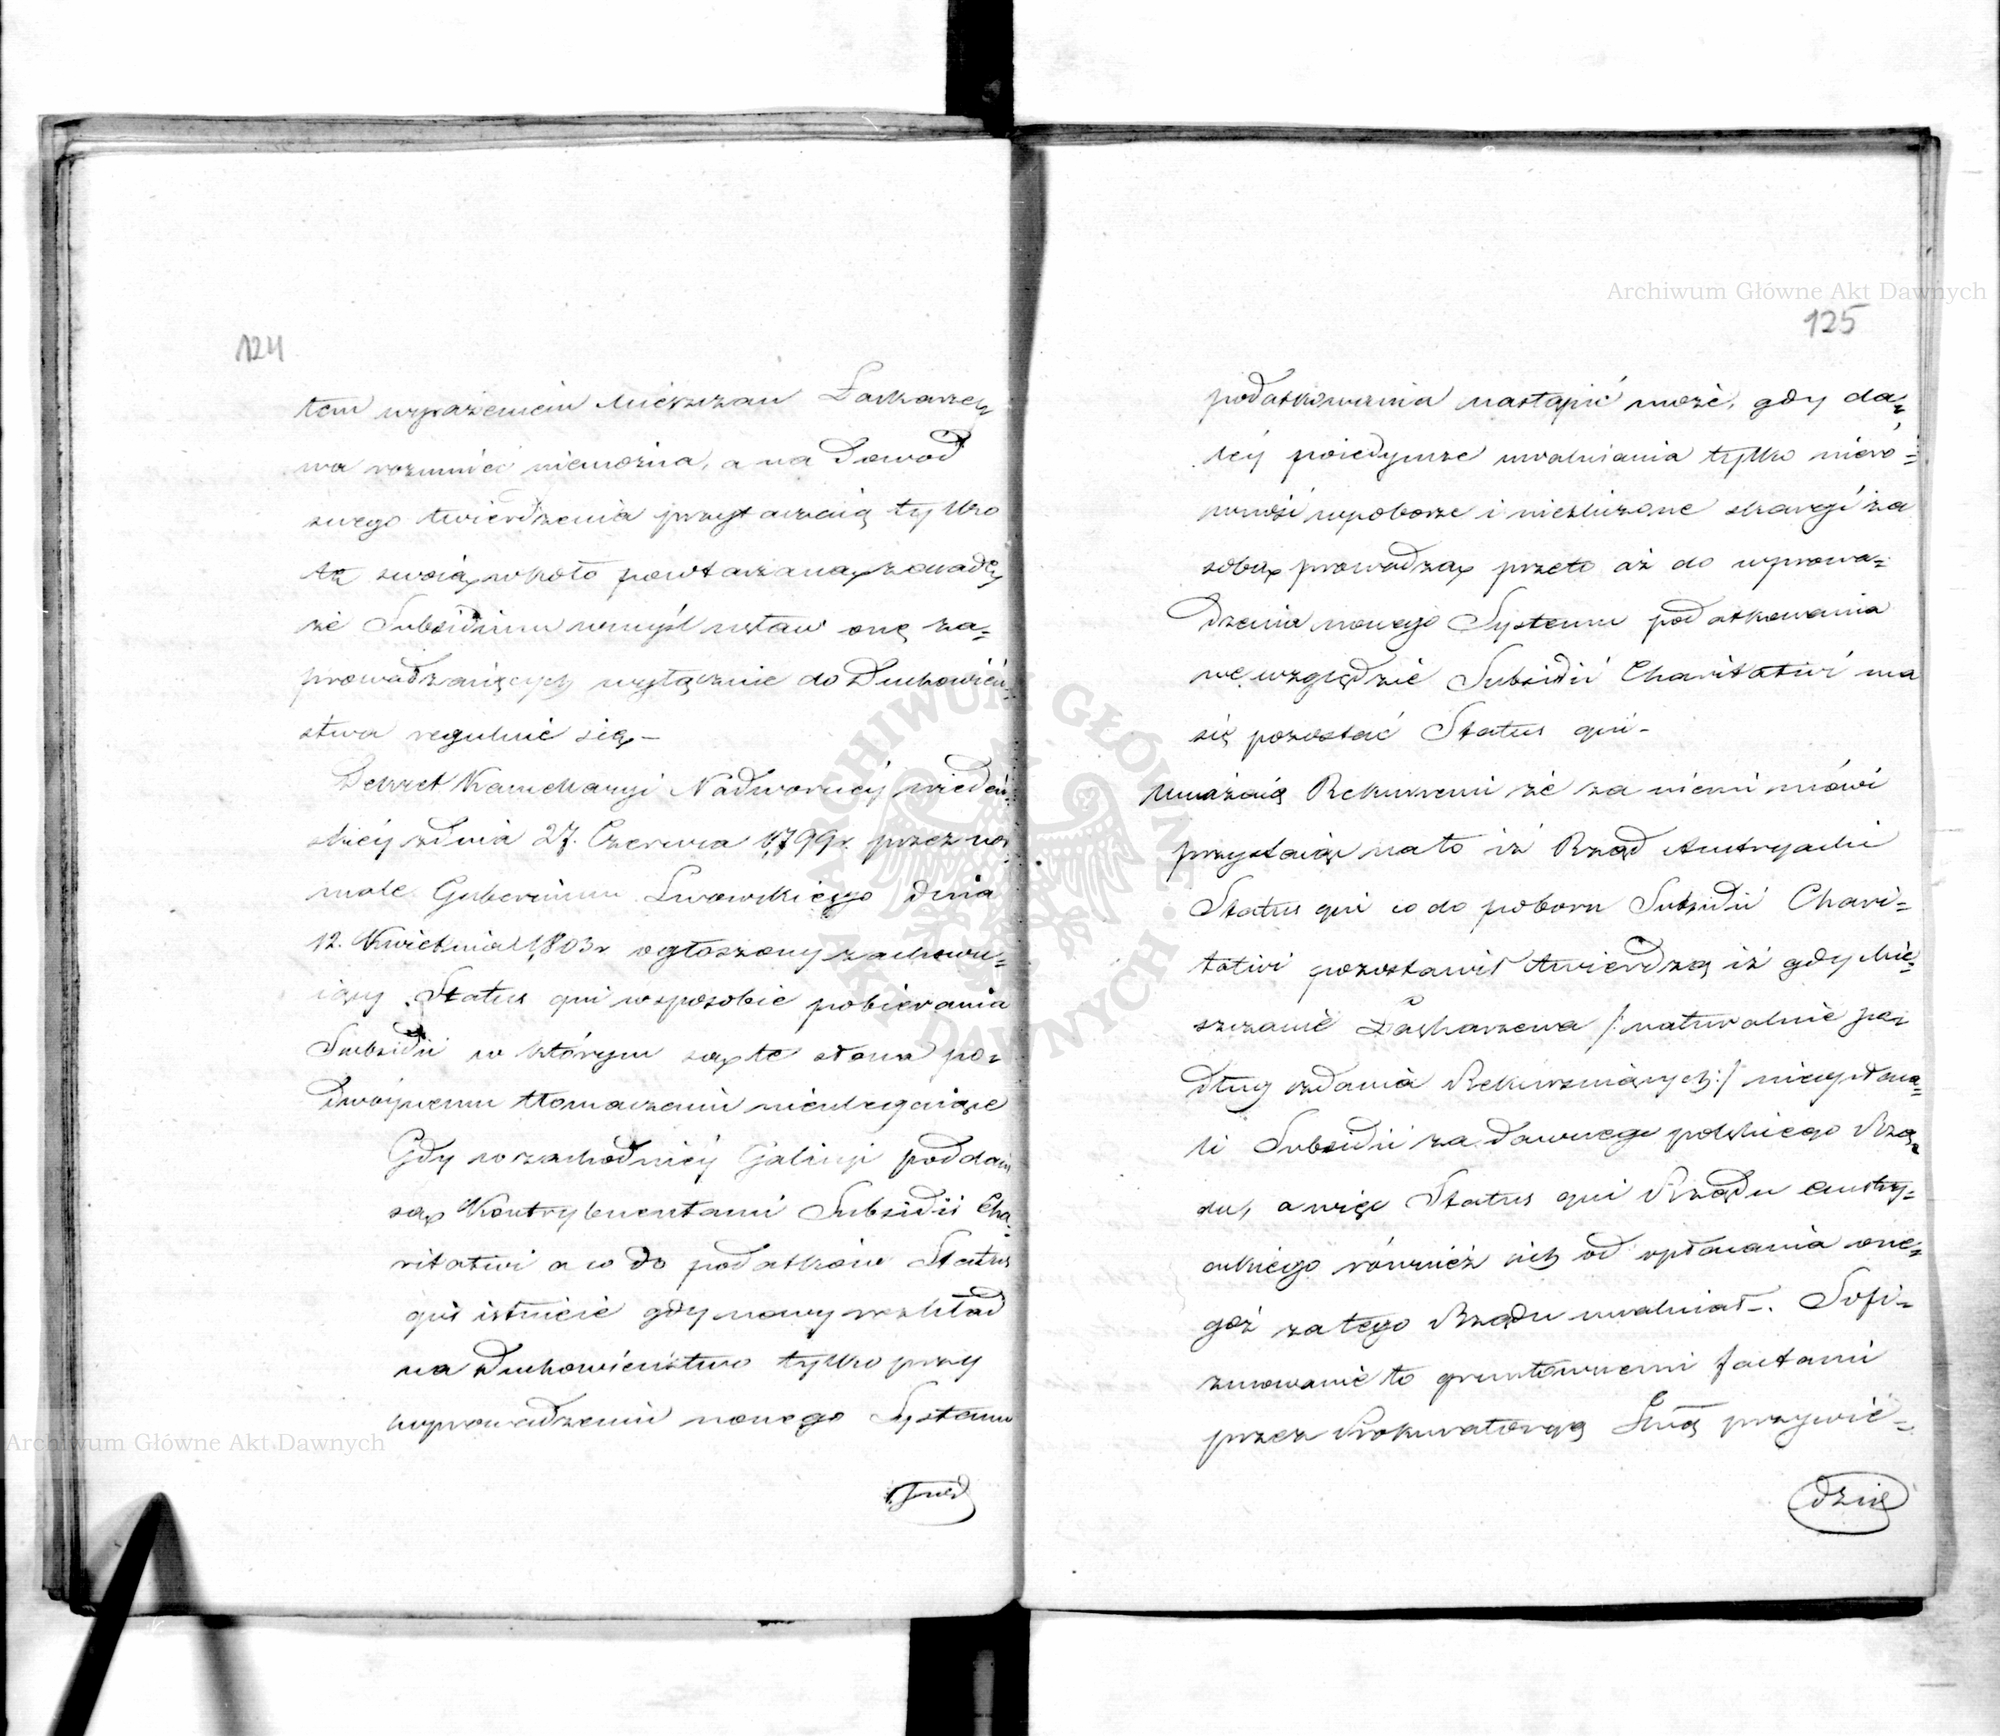 124
tem wyrażeniem Mieszczan Łaskarzew
wa rozumieć niemożna, a na Dowod
swego twierdzenia przytaczaią tylko
tę swoią wkoło powtarzaną zasadę,
że Subsidium wmyśl ustaw onę za=
prowadzaiących wyłącznie do Duchowień=
stwa reguluie się –
Dekret Kancellaryi Nadwornéy wiedeń=
skiéy zdnia 27. Czerwca 1799 r. przez nor
male Gubernium Lwowskiego dnia
12. Kwietnia 1803 r ogłoszony zachowu=
iący Status qui wsposobie pobierania
Subsidii w którym są te słowa po=
dwóynemu tłomaczeniu nieulegaiące
Gdy w zachodniéy Galicyi poddani
są Kontrybuentami Subsidii Cha=
ritativi a co do podatków Status
qui istnieie gdy nowy rozkład
na Duchowieństwo tylko przy
wprowadzeniu nowego Systemu
Archiwum Główne Akt Dawnych
Archiwum Główne Akt Dawnych
125
podatkowania nastąpić może, gdy da=
léy poiedyncze uwalniania tylko nieró=
wność wpoborze i niezliczone skargi za
sobą prowadzą przeto aż do wprowa=
dzenia nowego Systemu podatkowania
we względzie Subsidii Charitativi ma
się pozostać Status qui –
Uważaią Rekurrenci że za niemi mówi
przystaiąc na to iż Rząd Austryacki
Status qui co do poboru Subsidii Chari=
tativi pozostawił twierdzą iż gdy Mie=
szczanie Łaskarzewa /: naturalnie po=
dług zdania Rekurruiących :/ nieopłaca=
li Subsidii za dawnego polskiego Rzą=
du, a więc Status qui Rządu Austry=
ackiego również ich od opłacania one=
goż za tego Rządu uwalniał –. Sofi=
zmowanie to gruntownemi factami
przez Prokuratoryą Lną przywie=
dzie
ARCHIWUM GŁÓWNE AKT DAWNYCH